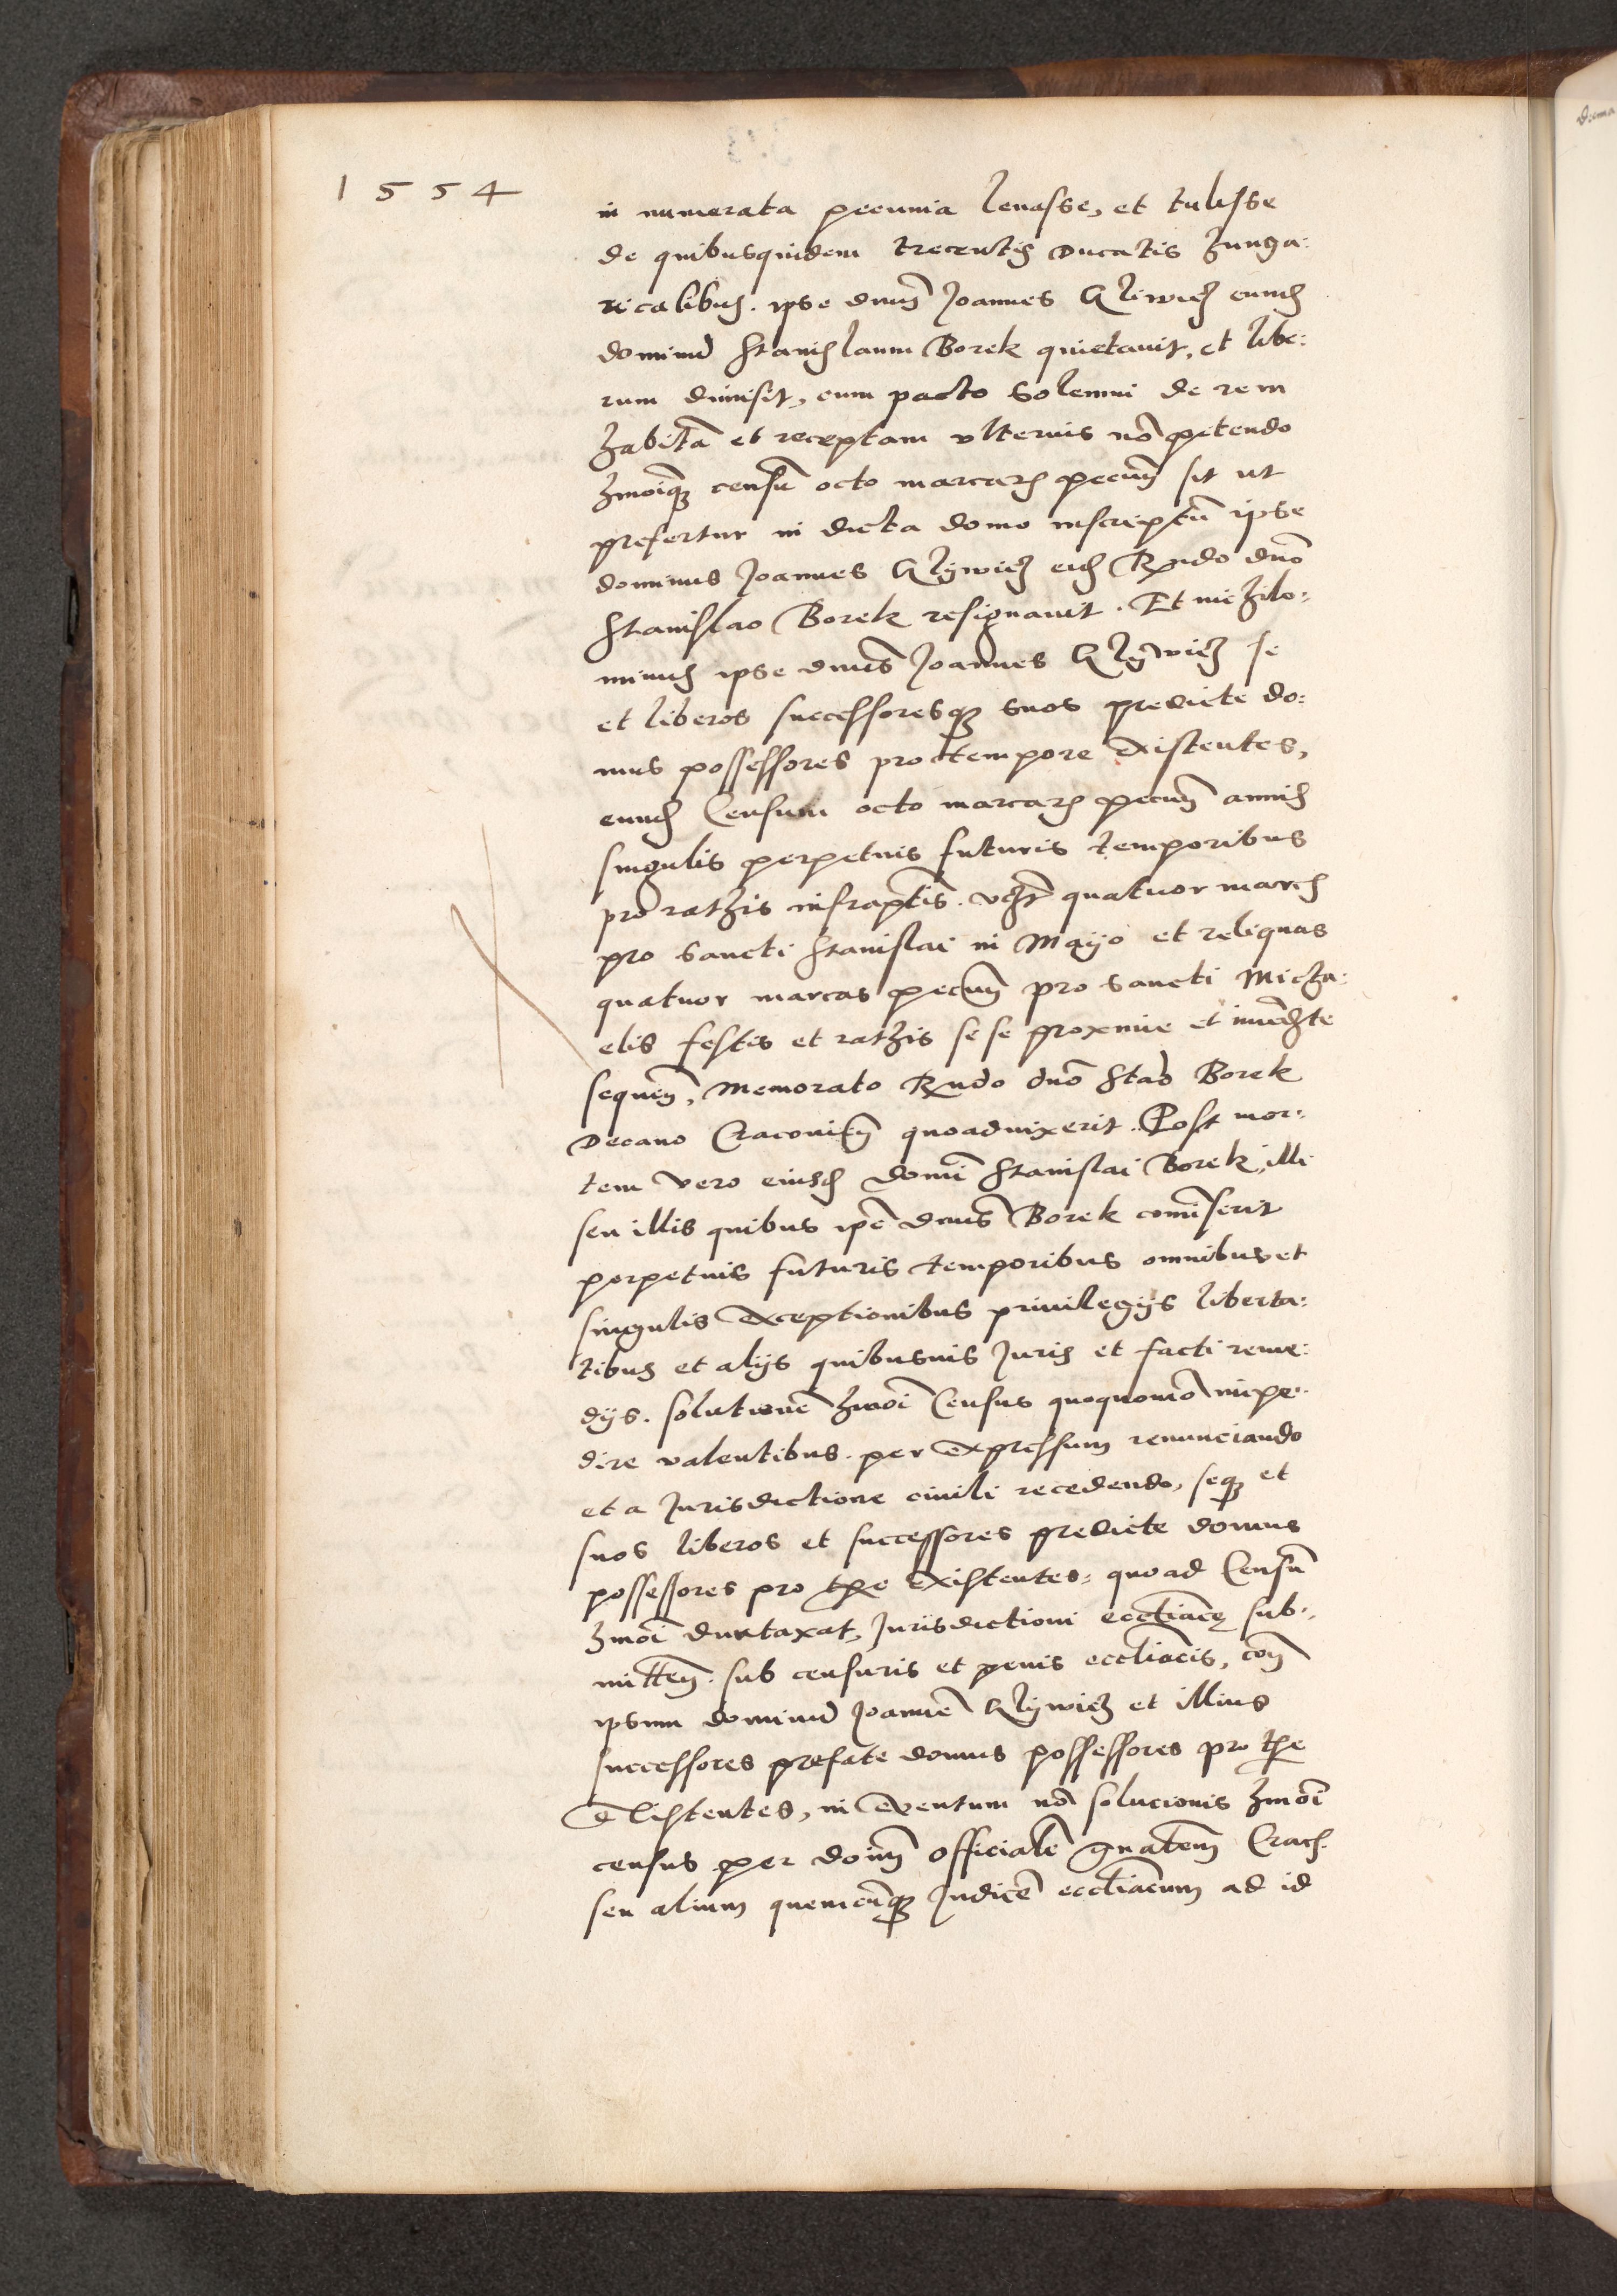 1554
in numerata pecunia leuasse, et tulisse
de quibusquidem trecentis Ducatis hunga:
ricalibus. ipse dnus Joannes Gliwicz eund
dominu Stanislaum Borek quietauit, et libe:
rum dimisit, cum pacto solemni de rem
habita et receptam vlterius no petendo
hmoiq censu octo marcar pecun sit ut
prefertur in dicta domo inscriptu ipse
dominus Joannes Glywicz eid Rndo dno
Stanislao Borek resignauit. Et nichilo:
minus ipse dnus Joannes Glywicz se
et liberos successoresq suos predicte do:
mus possessores pro tempore existentes,
eund Censum octo marcar pecun annis
singulis perpetuis futuris temporibus
pro rathis infraptis. vczt quatuor marcs
pro sancti Stanislai in Mayo et reliquas
quatuor marcas pecun pro sancti Micha:
elis festis et rathis se se proxime et immedte
sequen, Memorato Rndo dno Stao Borek
Decano Cracovien quoaduixerit. Post mor:
tem vero eiusd domi Stanislai Borek, illi
seu illis quibus ipe dnus Borek comiserit
perpetuis futuris temporibus omnibus et
singulis exceptionibus priuilegijs liberta:
tibus et alijs quibusuis Juris et facti reme:
dijs. solutione hmoi Census quoquomo impe:
dire valentibus. per expressum renunciando
et a Jurisdictione ciuili recedendo, seq et
suos liberos et successores predicte domus
possessores pro tpe existentes, quo ad Censu
hmoi duntaxat, Jurisdictioni eccliace sub:
mitten. sub censuris et penis eccliacis, con
ipsum dominu Joanne Glywicz et illius
successores prefate domus possessores pro tpe
existentes, in euentum no solucionis hmoi
census per donm officiale gnalem Crac.
seu alium quemcuq Judice eccliacum ad id